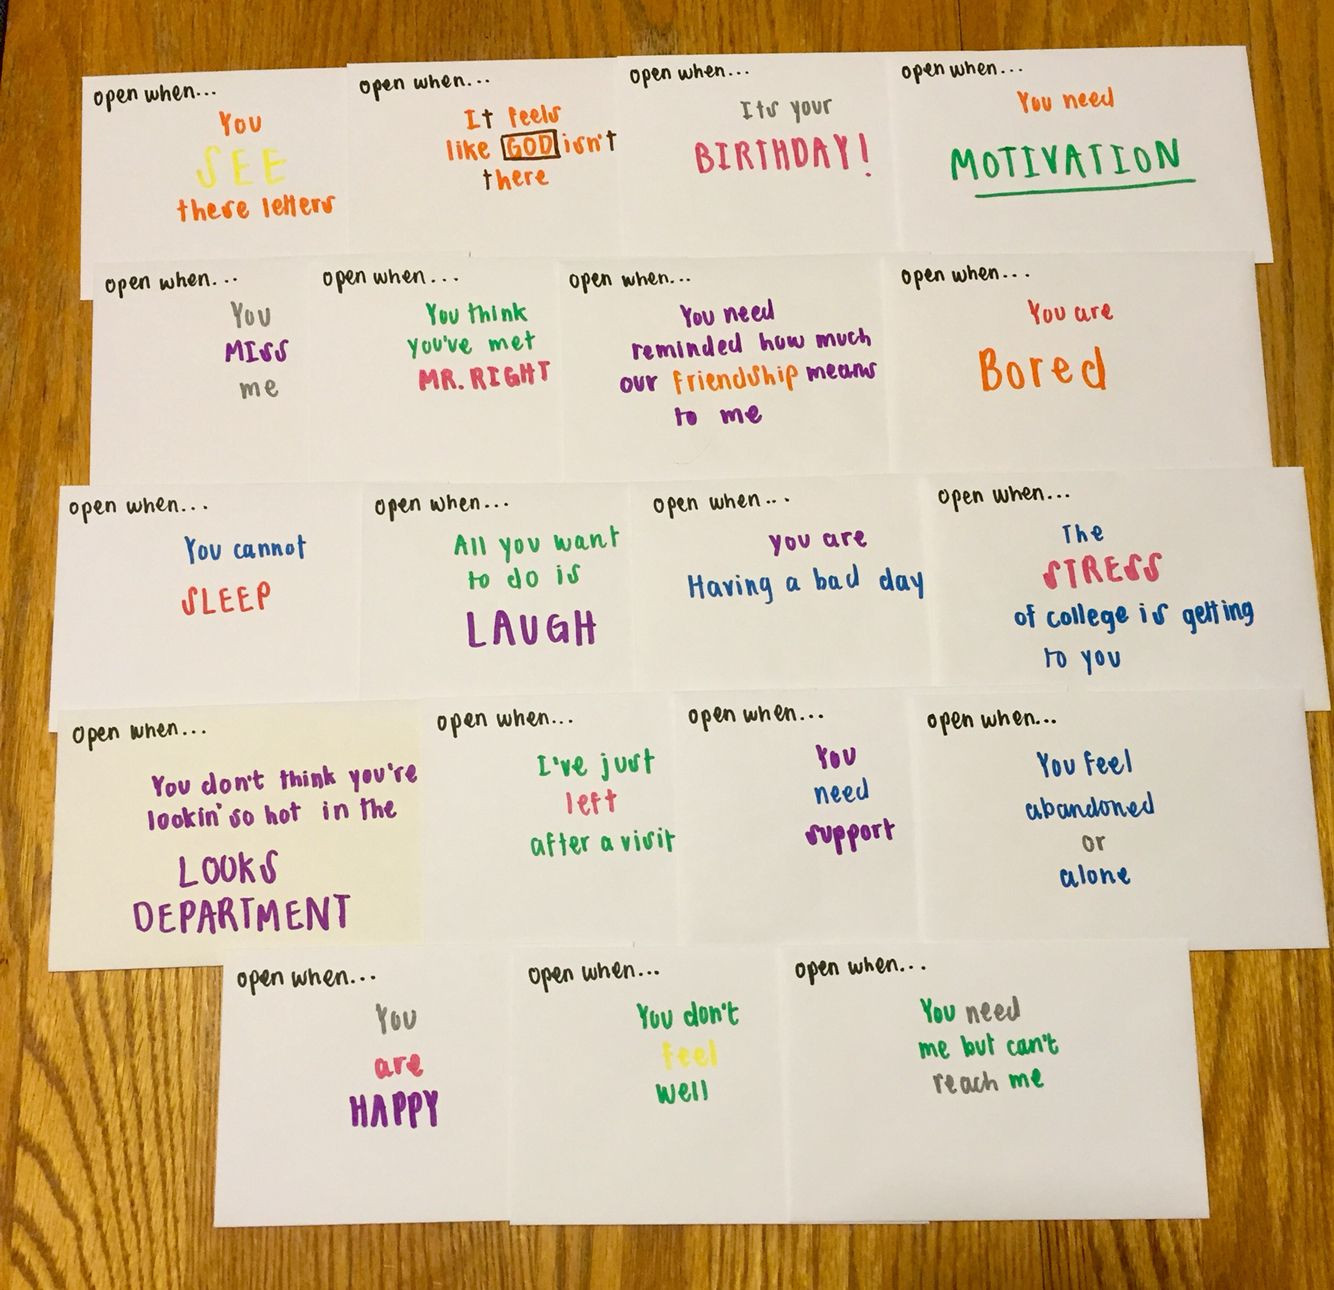 open when...
You
SEE
these letters
open when...
It feels
like GOD isn't
there
open when...
Its your
BIRTHDAY!
open when...
You need
MOTIVATION
open when...
You
MISS
me
open when...
You think
you've met
MR. RIGHT
open when...
You need
reminded how much
our friendship means
to me
open when...
You are
Bored
open when...
You cannot
SLEEP
open when...
All you want
to do is
LAUGH
open when...
you are
Having a bad day
open when...
The
STRESS
of college is getting
to you
open when...
You don't think you're
lookin' so hot in the
LOOKS
DEPARTMENT
open when...
I've just
left
after a visit
open when...
You
need
support
open when...
You feel
abandoned
or
alone
open when...
You
are
HAPPY
open when...
You don't
feel
well
open when...
You need
me but can't
reach me